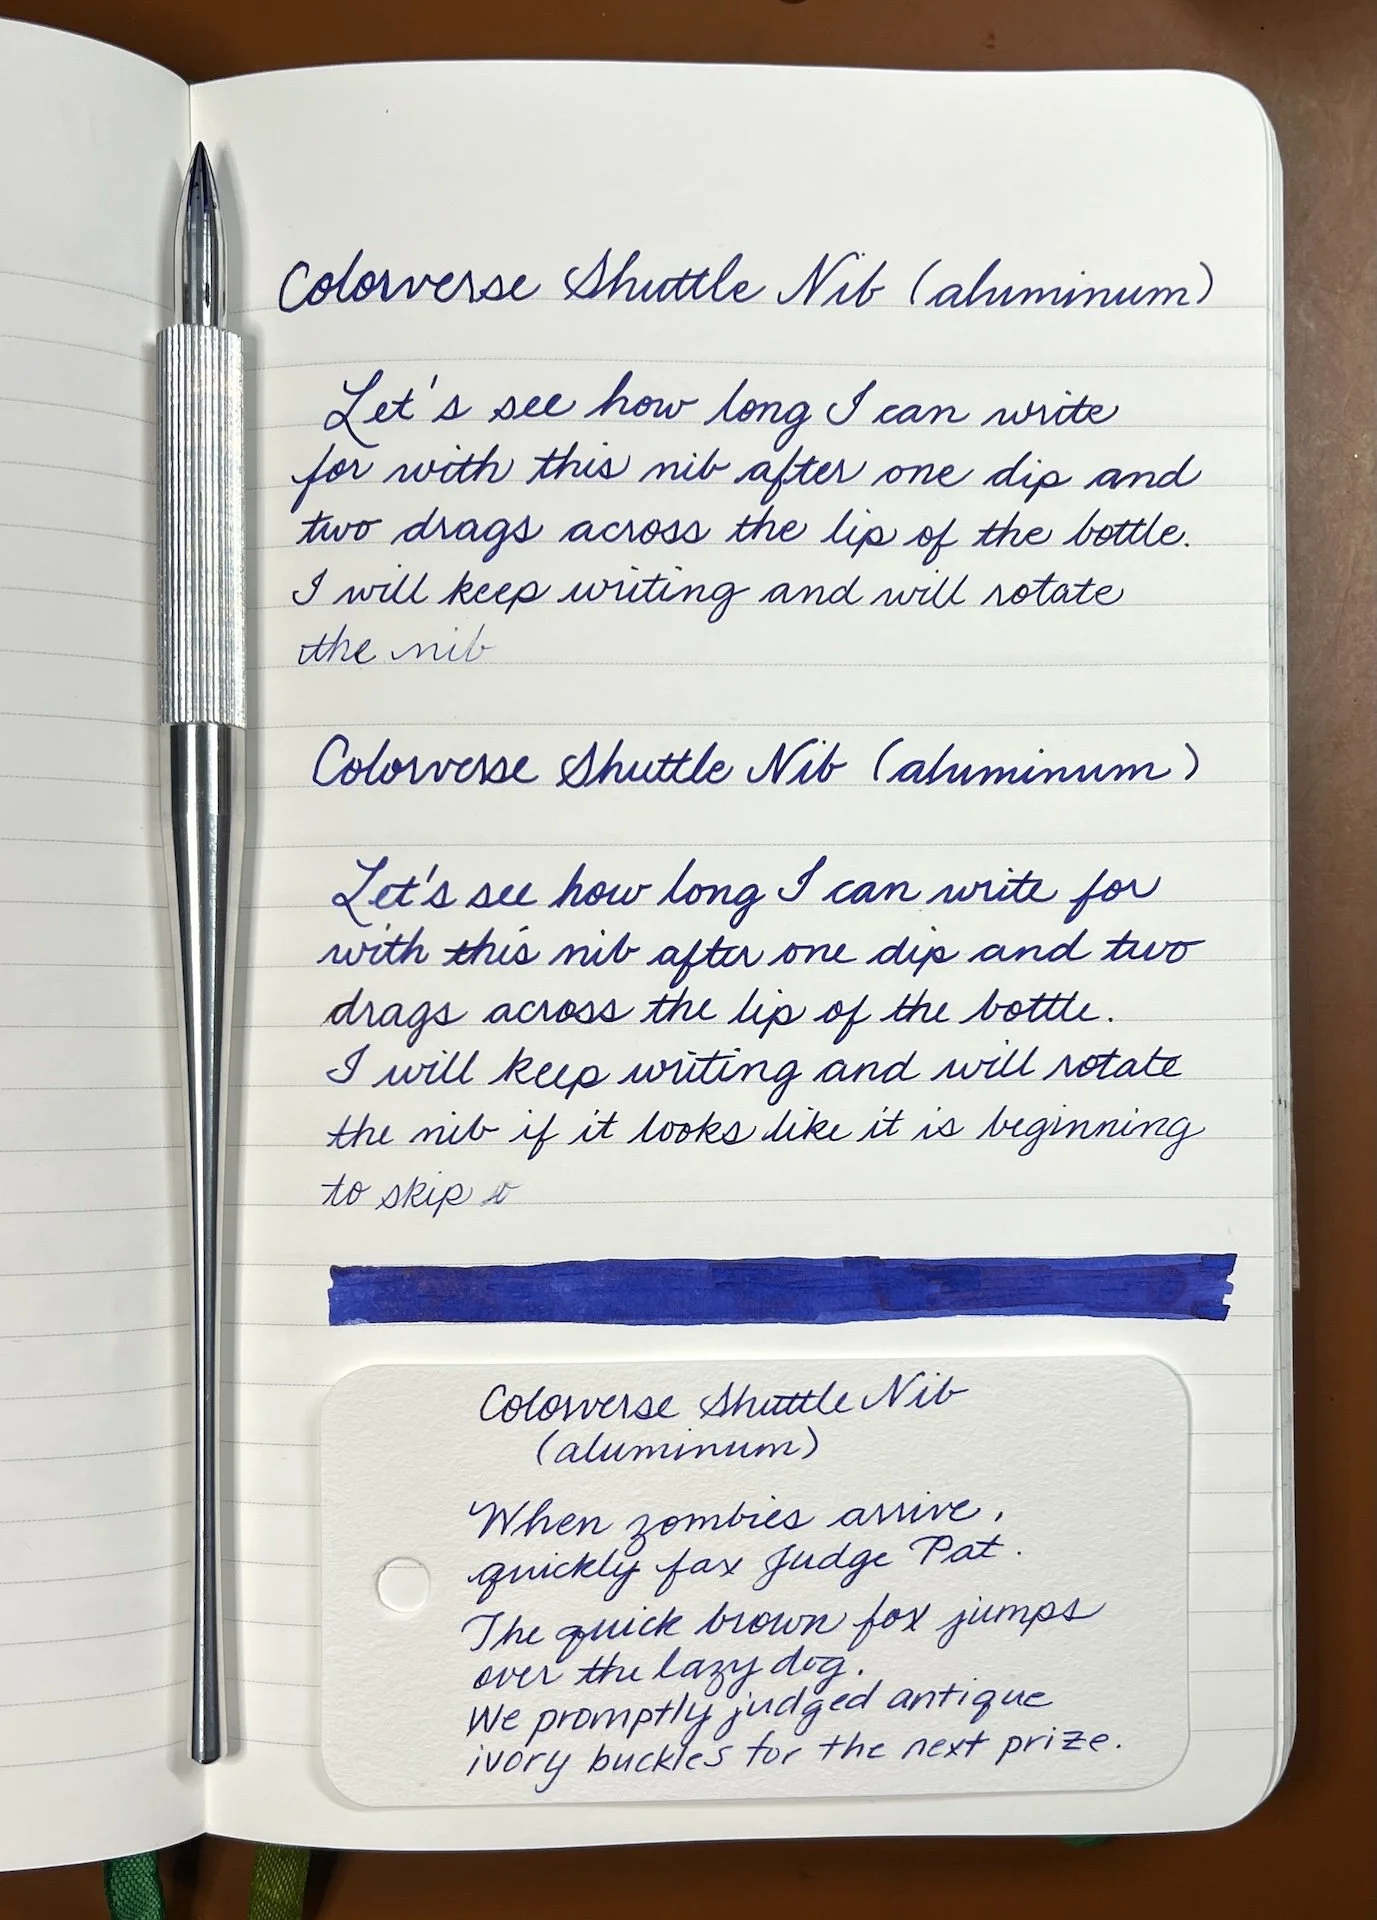 Colorverse Shuttle Nib (aluminum)
Let's see how long I can write
for with this nib after one dip and
two drags across the lip of the bottle.
I will keep writing and will rotate
the nib
Colorverse Shuttle Nib (aluminum)
Let's see how long I can write for
with this nib after one dip and two
drags across the lip of the bottle.
I will keep writing and will rotate
the nib if it looks like it is beginning
to skip
Colorverse Shuttle Nib
(aluminum)
When zombies arrive,
quickly fax Judge Pat.
The quick brown fox jumps
over the lazy dog.
We promptly judged antique
ivory buckles for the next prize.